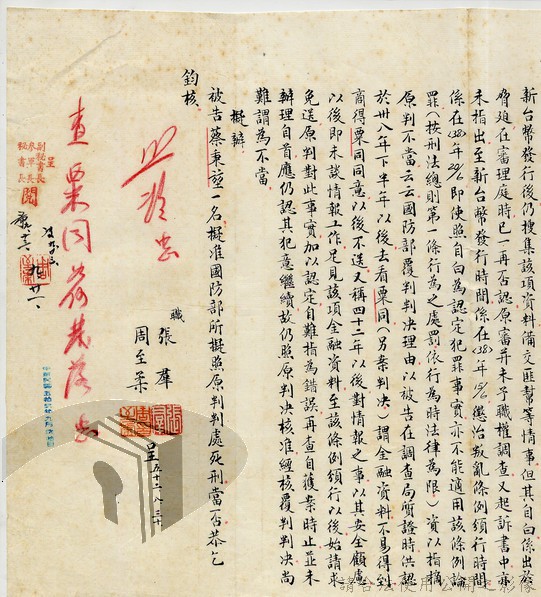 新台幣發行後仍搜集該項資料備交匪幫等情事但其自白係出於
脅迫在審理庭時已一再否認原審并未予職權調查又起訴書中亦
未指出至新台幣發行時間係在(38)年 懲治叛亂條例頒行時間
係在(38)年 即使照自白為認定犯罪事實亦不能適用該條例論
罪(按刑法總則第一條行為之處罰依行為時法律為限)資以指摘
原判不當云云國防部覆判判決理由以被告在調查局質證時供認
於卅八年下半年以後去看粟同(另案判決)謂金融資料不易得到
商得粟同同意以後不送又稱四十二年以後對情報之事以其安全顧慮
以後即未談情報工作足見該項金融資料至該條例頒行以後始請求
免送原判對此事實加以認定自難指為錯誤再查自獲案時止並未
辦理自首應仍認其犯意繼續故仍照原判決核准經核覆判判決尚
難謂為不當
擬辦
被告蔡秉堃一名擬准國防部所擬照原判判處死刑當否恭乞
鈞核
職 張羣
周至柔
呈 五十二、八、三十
照准
查粟同
呈
副秘書長
參軍長
秘書長
閱
請合法使用公開之影像